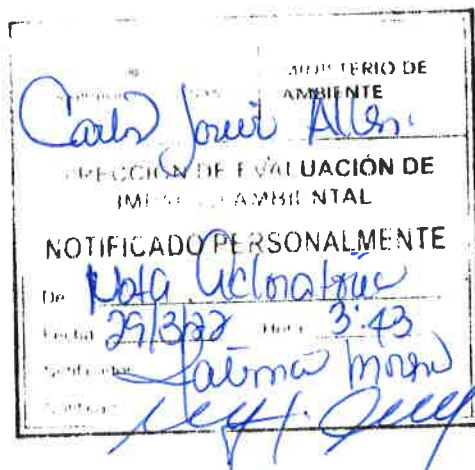 MINISTERIO DE
AMBIENTE
Carlos Javier Allen.
DIRECCIÓN DE EVALUACIÓN DE
IMPACTO AMBIENTAL
NOTIFICADO PERSONALMENTE
De Nota Aclaratoria
Fecha 29/3/22 Hora 3:43
Notificador Fatima Moreno